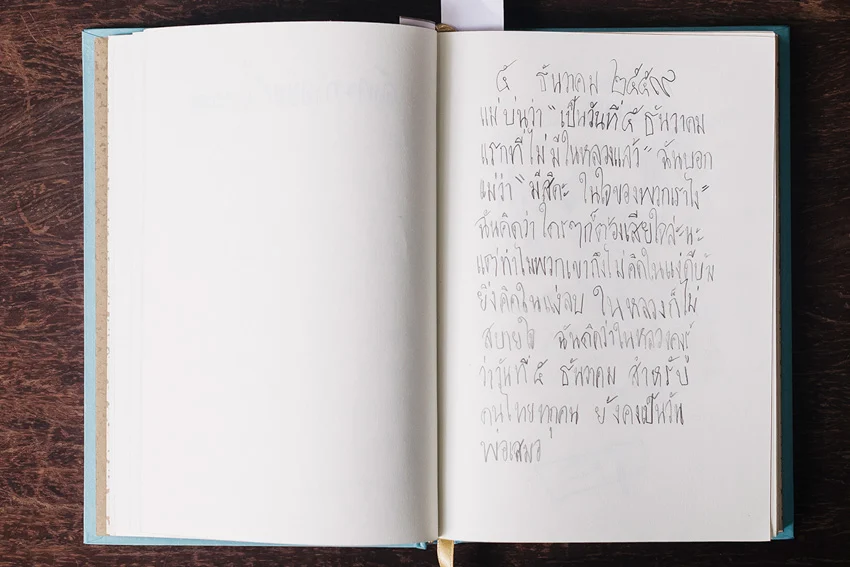 ๕ ธันวาคม ๒๕๕๙
แม่บ่นว่า "เป็นวันที่ ๕ ธันวาคม
แรกที่ไม่มีในหลวงแล้ว" ฉันบอก
แม่ว่า "มีสิคะ ในใจของพวกเราไง"
ฉันคิดว่าใครๆก็ต้องเสียใจล่ะนะ
แต่ทำไมพวกเขาถึงไม่คิดในแง่ดีบ้าง
ยิ่งคิดในแง่ลบ ในหลวงก็ไม่
สบายใจ ฉันคิดว่าในหลวงคงรู้
ว่าวันที่ ๕ ธันวาคม สำหรับ
คนไทยทุกคน ยังคงเป็นวัน
พ่อเสมอ